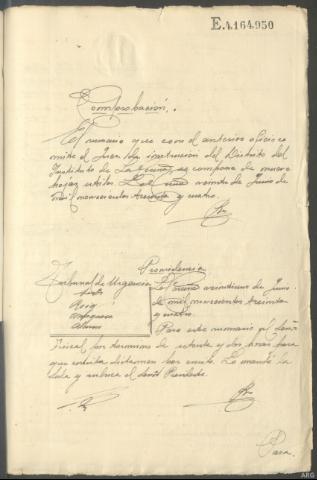 E.4.164.950
Comprobación.
El sumario que con el anterior oficio re
mite el Juez de instrucción del Distrito del
Instituto de La Coruña, se compone de nueve
hojas útiles. La Coruña veinte de Junio de
mil novecientos treinta y cuatro.
Providencia
Tribunal de Urgencia
La Coruña veintiuno de Junio
de mil novecientos treinta
y cuatro.
Pase este sumario al Señor
Fiscal por término de setenta y dos horas para
que emita dictamen por escrito. Lo mandó la
Sala y rubrica el Señor Presidente.
Para.
ARG